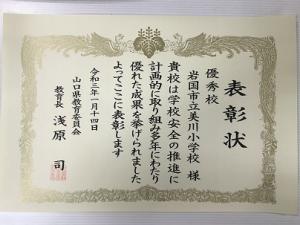 表彰状
優秀校
岩国市立美川小学校 様
貴校は学校安全の推進に
計画的に取り組み多年にわたり
優れた成果を挙げられました
よってここに表彰します
令和三年一月十四日
山口県教育委員会
教育長 浅原 司